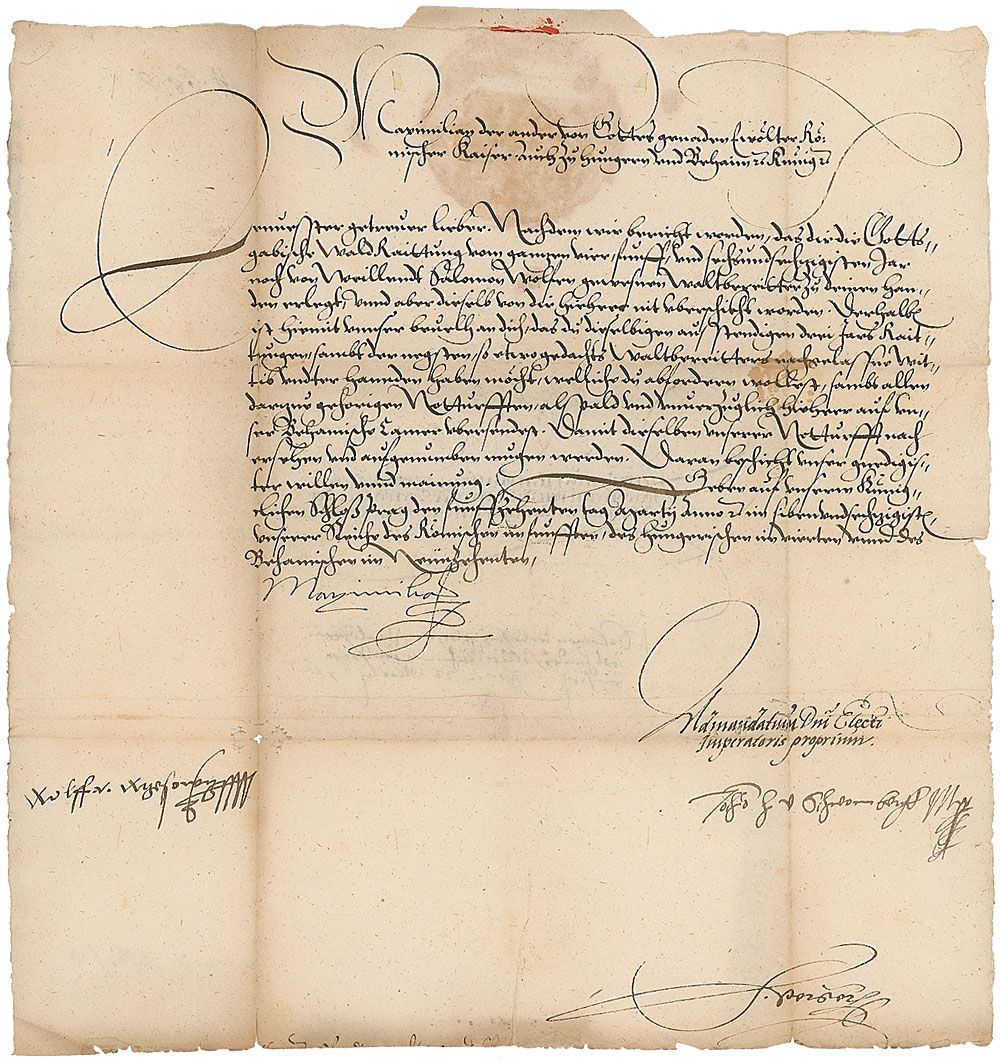 Maximilian der ander von Gottes genaden Erwölter Rö-
mischer Kaiser auch zu Hungern und Behaim etc. Künig etc.
Ernuesster getreuer lieber. Nachdem wir bericht worden, das dir die Gotts-
gabische Wald Raittung vom gantzen vier, funff, und sechsundsechzigisten Jar
noch von Weillendt Salomon Wolfen gewesnen Waltbereitter zu deinen han-
den erlegt, unnd aber dieselb von dir hieheer nit uberschickt worden. Derhalben
ist hiemit unnser beuelh an dich, das du dieselbigen ausstendigen drei Jars Rait-
tungen, sambt der negsten, so etwo gedachts Waltbereitters nachgelassne Wit-
tib undter hannden haben möcht, welche du abfordern wollest, sambt allen
darzue gehorigen Notturfften, alspald und unuerzuglich hieheer auf un-
ser Behamische Camer ubersendest. Damit dieselben unserer Notturfft nach
ersehen und aufgenumben mugen werden. Daran beschicht unser gnedigis-
ter willen unnd mainung. Geben auf unserm Künig-
lichen Schloß Prag den funffzehenten tag Martzj Anno etc. im sibenundsechzigisten,
unserer Reiche des Römischen im funfften, des Hungerischen im vierten unnd des
Behamischen im Neünzehenten.
Maximilian
Ad mandatum Dni Electi
Imperatoris proprium.
Wolff v.
Joh. H v Schwambergk Mpp